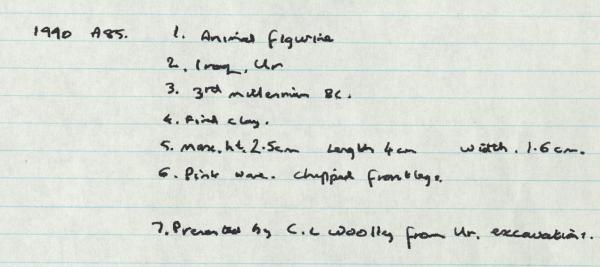 1990 A85. 1. Animal figurine
2. Iraq, Ur
3. 3rd millennium BC.
4. Fired clay.
5. Max. ht. 2.5cm Length 4cm width. 1.6cm.
6. Pink ware. Chipped front legs.
7. Presented by C.L Woolley from Ur. excavations.